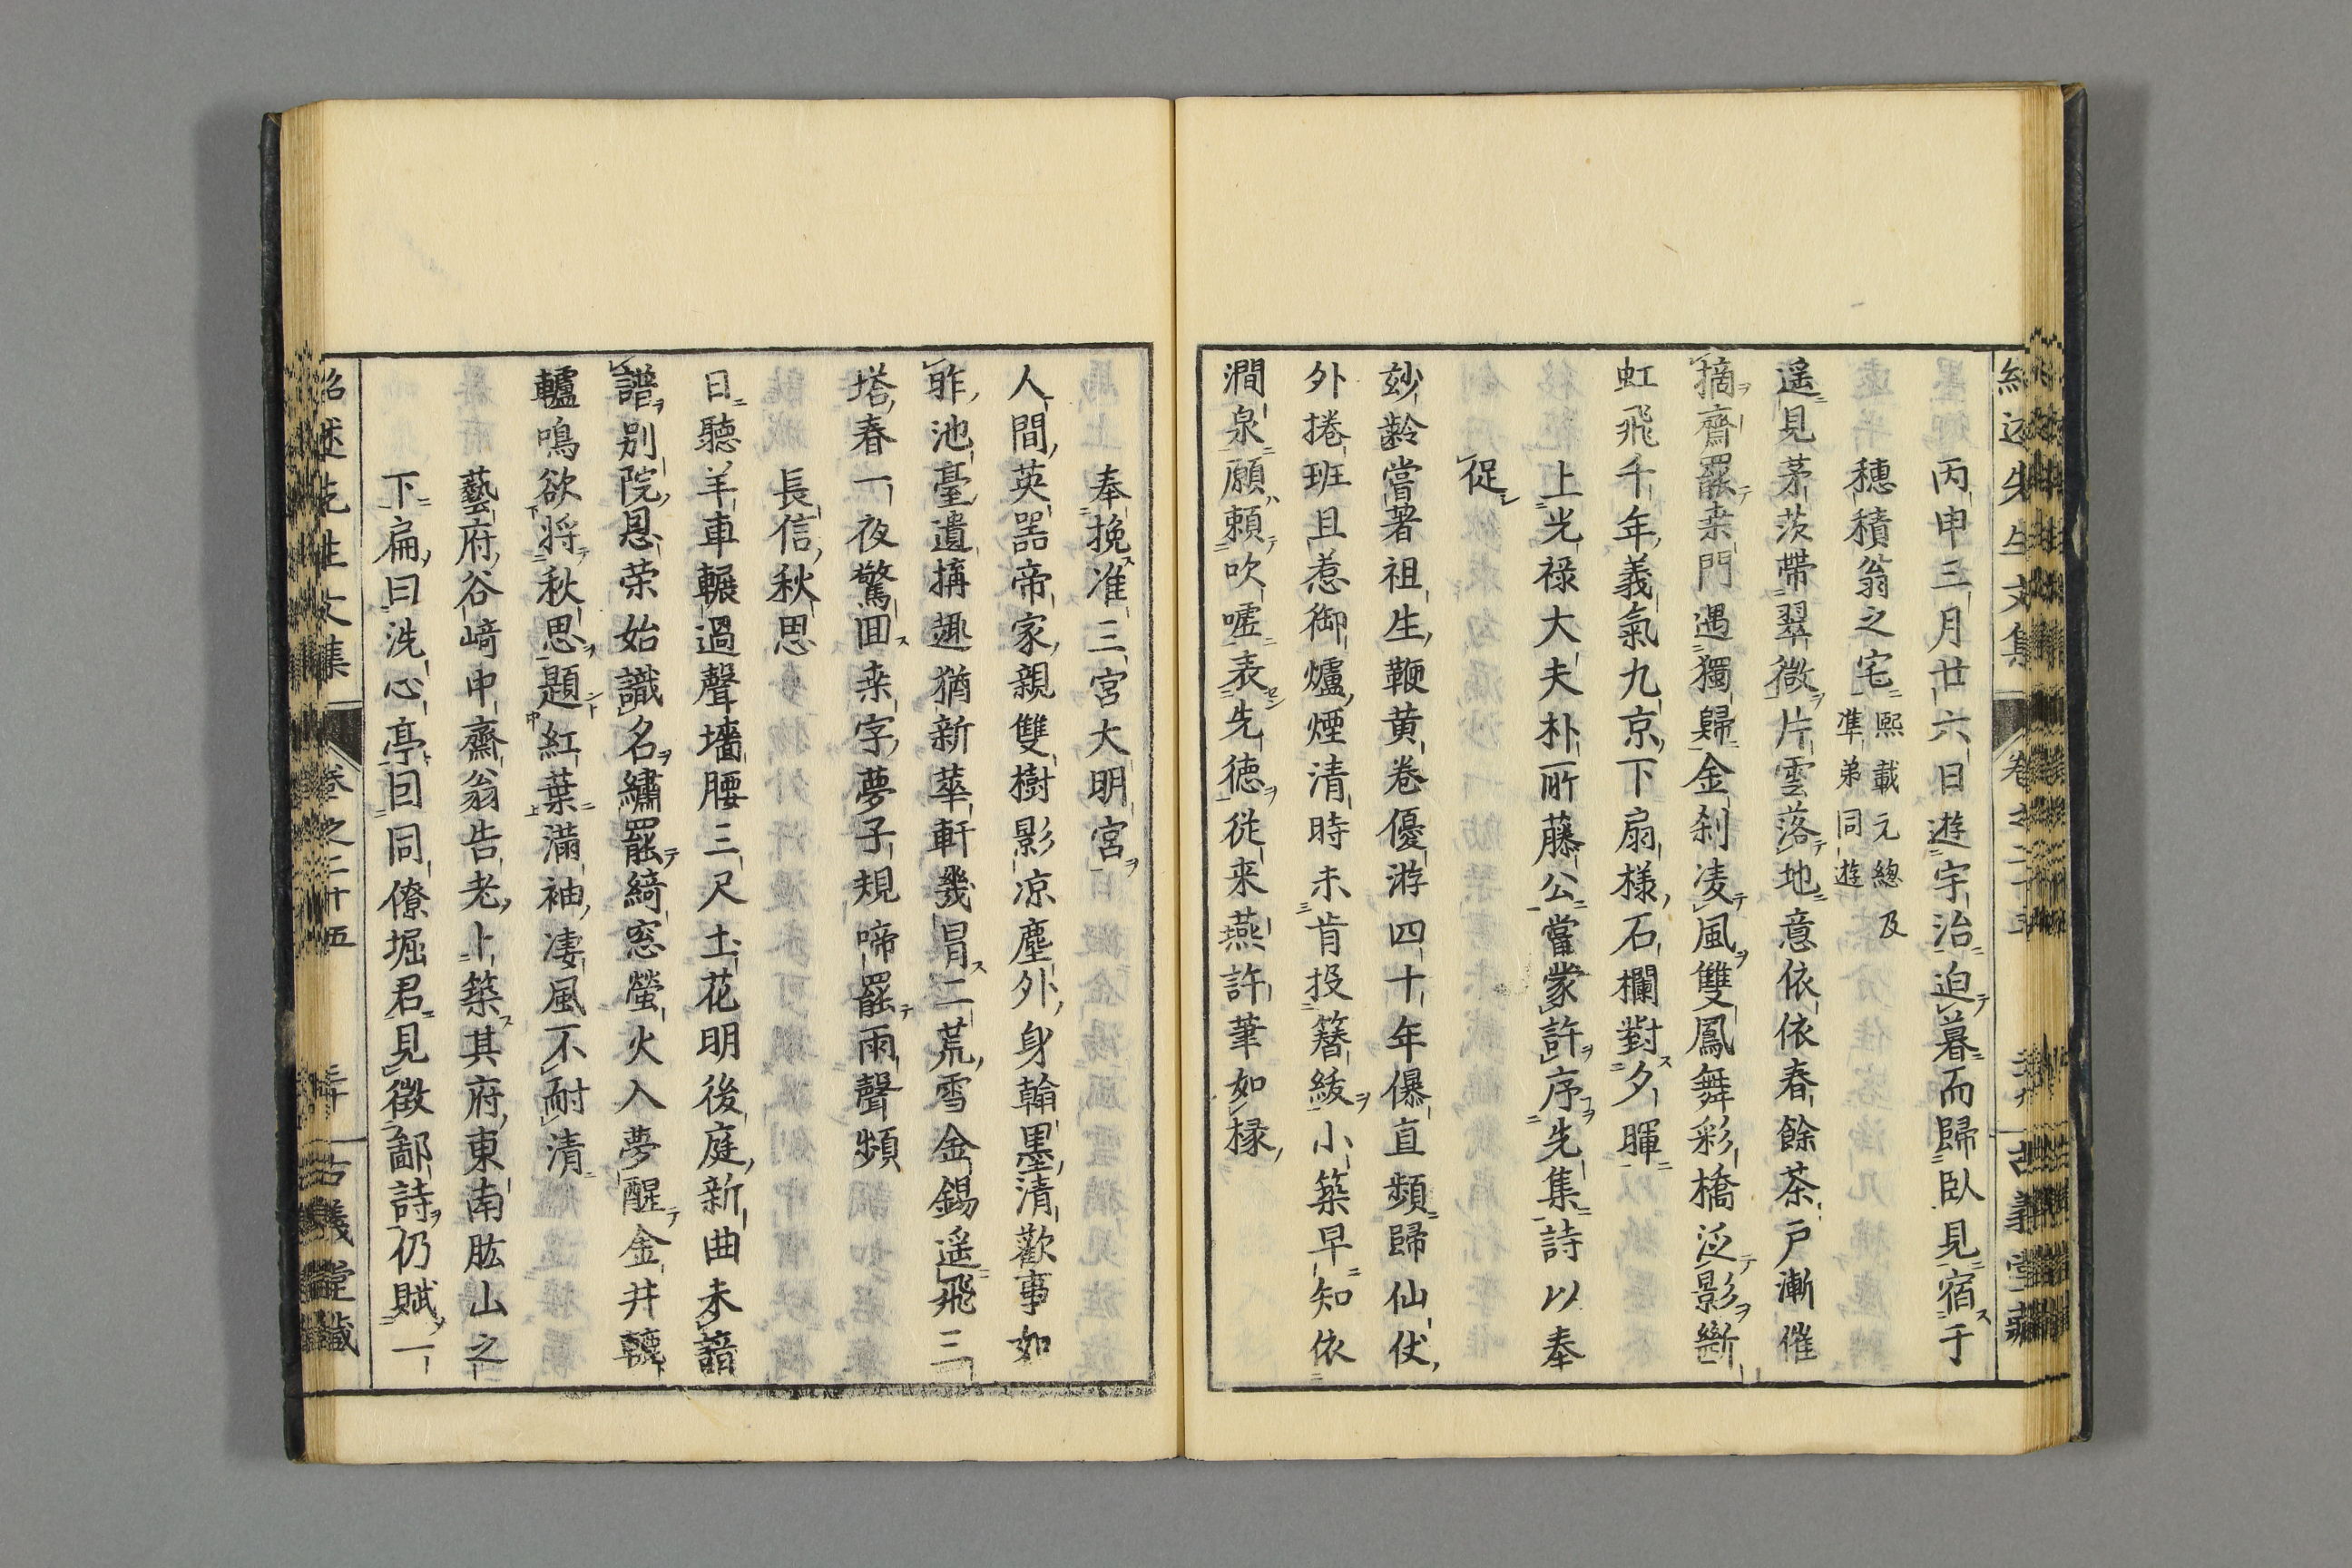 丙申三月廿六日遊宇治迫暮而歸臥見宿于
穗積翁之宅熙載元總及
準弟同遊
遥見茅茨帶翠微片雲落地意依依春餘茶戸漸催
摘齋罷桒門遇獨歸金刹凌風雙鳳舞彩橋泛影斷
虹飛千年義氣九京下扇樣石欄對夕暉
上光禄大夫朴所藤公嘗蒙許序先集詩以奉
促
玅齡嘗著祖生鞭黄卷優游四十年儤直頻歸仙仗
外捲班且惹御爐煙清時未肯投簪紱小築早知依
澗泉願頼吹嘘表先徳從来燕許筆如椽
奉挽准三宮大明宮
人間英噐帝家親雙樹影凉塵外身翰墨清歡事如
昨池臺遺搆趣猶新萃軒幾冐二荒雪金錫遥飛三
塔春一夜驚回桒字夢子規啼罷雨聲頻
長信秋思
日聽羊車輾過聲墻腰三尺土花明後庭新曲未諳
譜別院恩荣始識名繡罷綺窓螢火入夢醒金井轆
轤鳴欲将秋思題紅葉滿袖凄風不耐清
藝府谷﨑申齋翁告老卜築其府東南肱山之
下扁曰洗心亭因同僚堀君見徵鄙詩仍賦一
紹述先生文集
卷之二十五
三十
古義堂藏